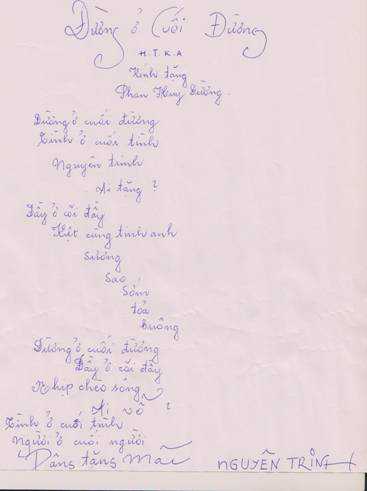 Đường ở Cuối Đường
H.T.K.A
Kính tặng
Phan Huy Đường.
Đường ở cuối đường
Tình ở cuối tình
Nguyên trinh
Ai tặng ?
Đầy ở cõi đầy
Kiệt cùng tinh anh
Sương
Sao
Sớm
toả
buông
Đường ở cuối đường
Đầy ở cõi đầy
Nhịp chèo sóng
Ai vỗ ?
Tình ở cuối tình
Người ở cuối người
Dâng tặng mãi
NGUYÊN TRINH